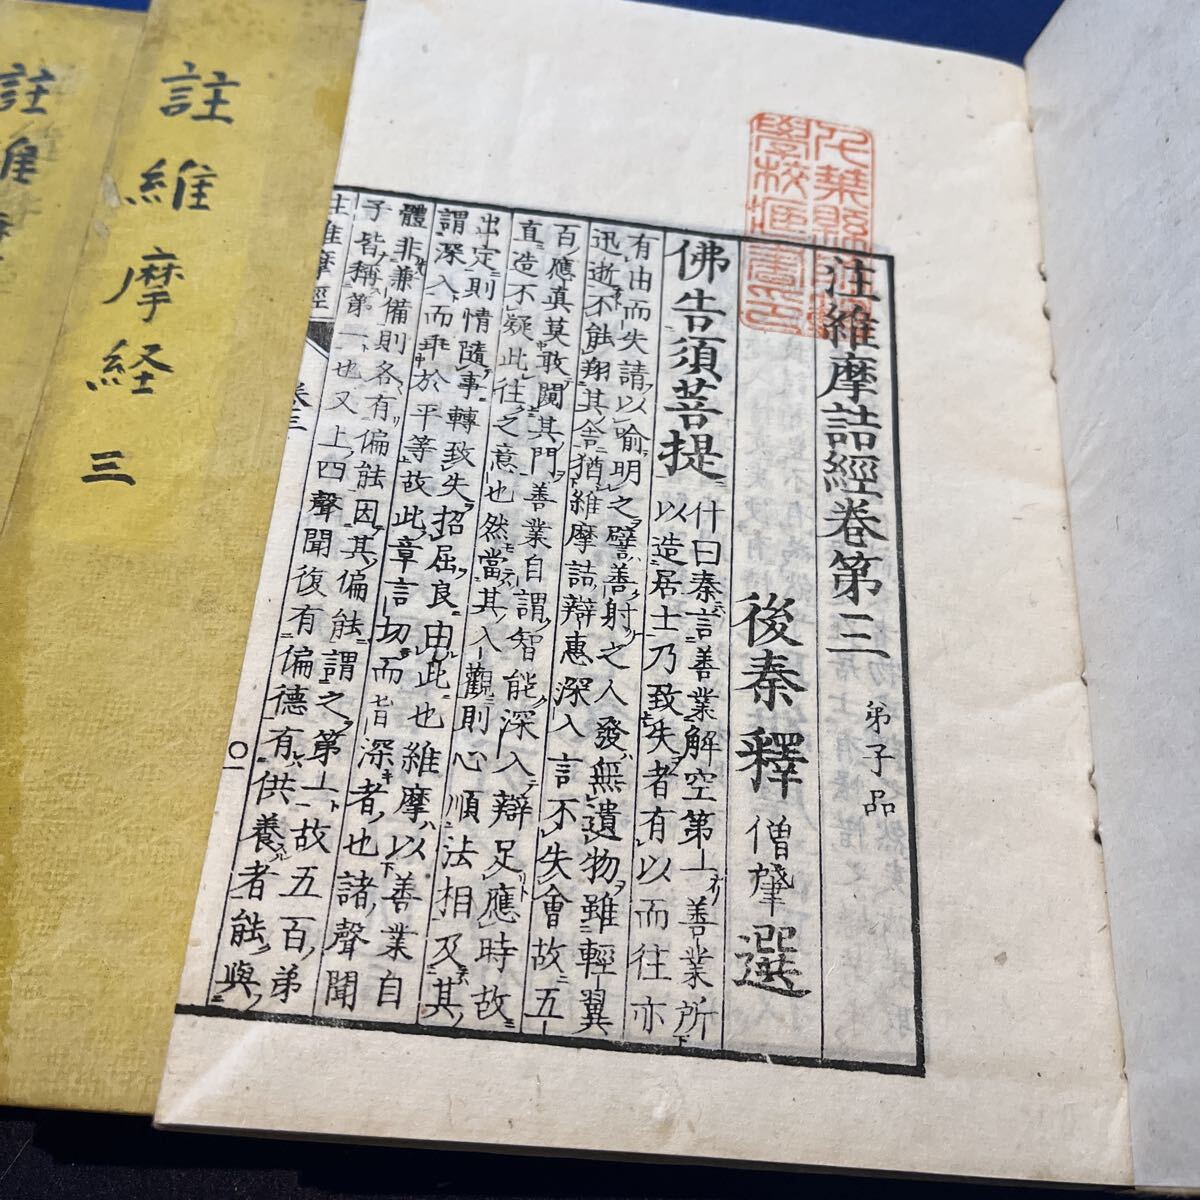 注維摩詰經卷第三 弟子品
後秦釋 僧肇選
佛告須菩提 什曰秦言善業解空第一善業所
以造居士乃致失者有以而往亦
有由而失請以喻明之譬善射之人發無遺物雖輕翼
迅逝不能翔其舍猶維摩詰辯惠深入言不失會故五
百應真莫敢闚其門善業自謂智能深入辯足應時故
直造不疑此往之意也然當其入觀則心順法相及其
出定則情隨事轉致失招屈良由此也維摩以善業自
謂深入而乖於平等故此章言切而旨深者也諸聲聞
體非兼備則各有偏能因其偏能謂之第一故五百弟
子皆稱第一也又上四聲聞復有偏德有供養者能與
註維摩經
卷三
〇一
註維摩経 三
註維摩